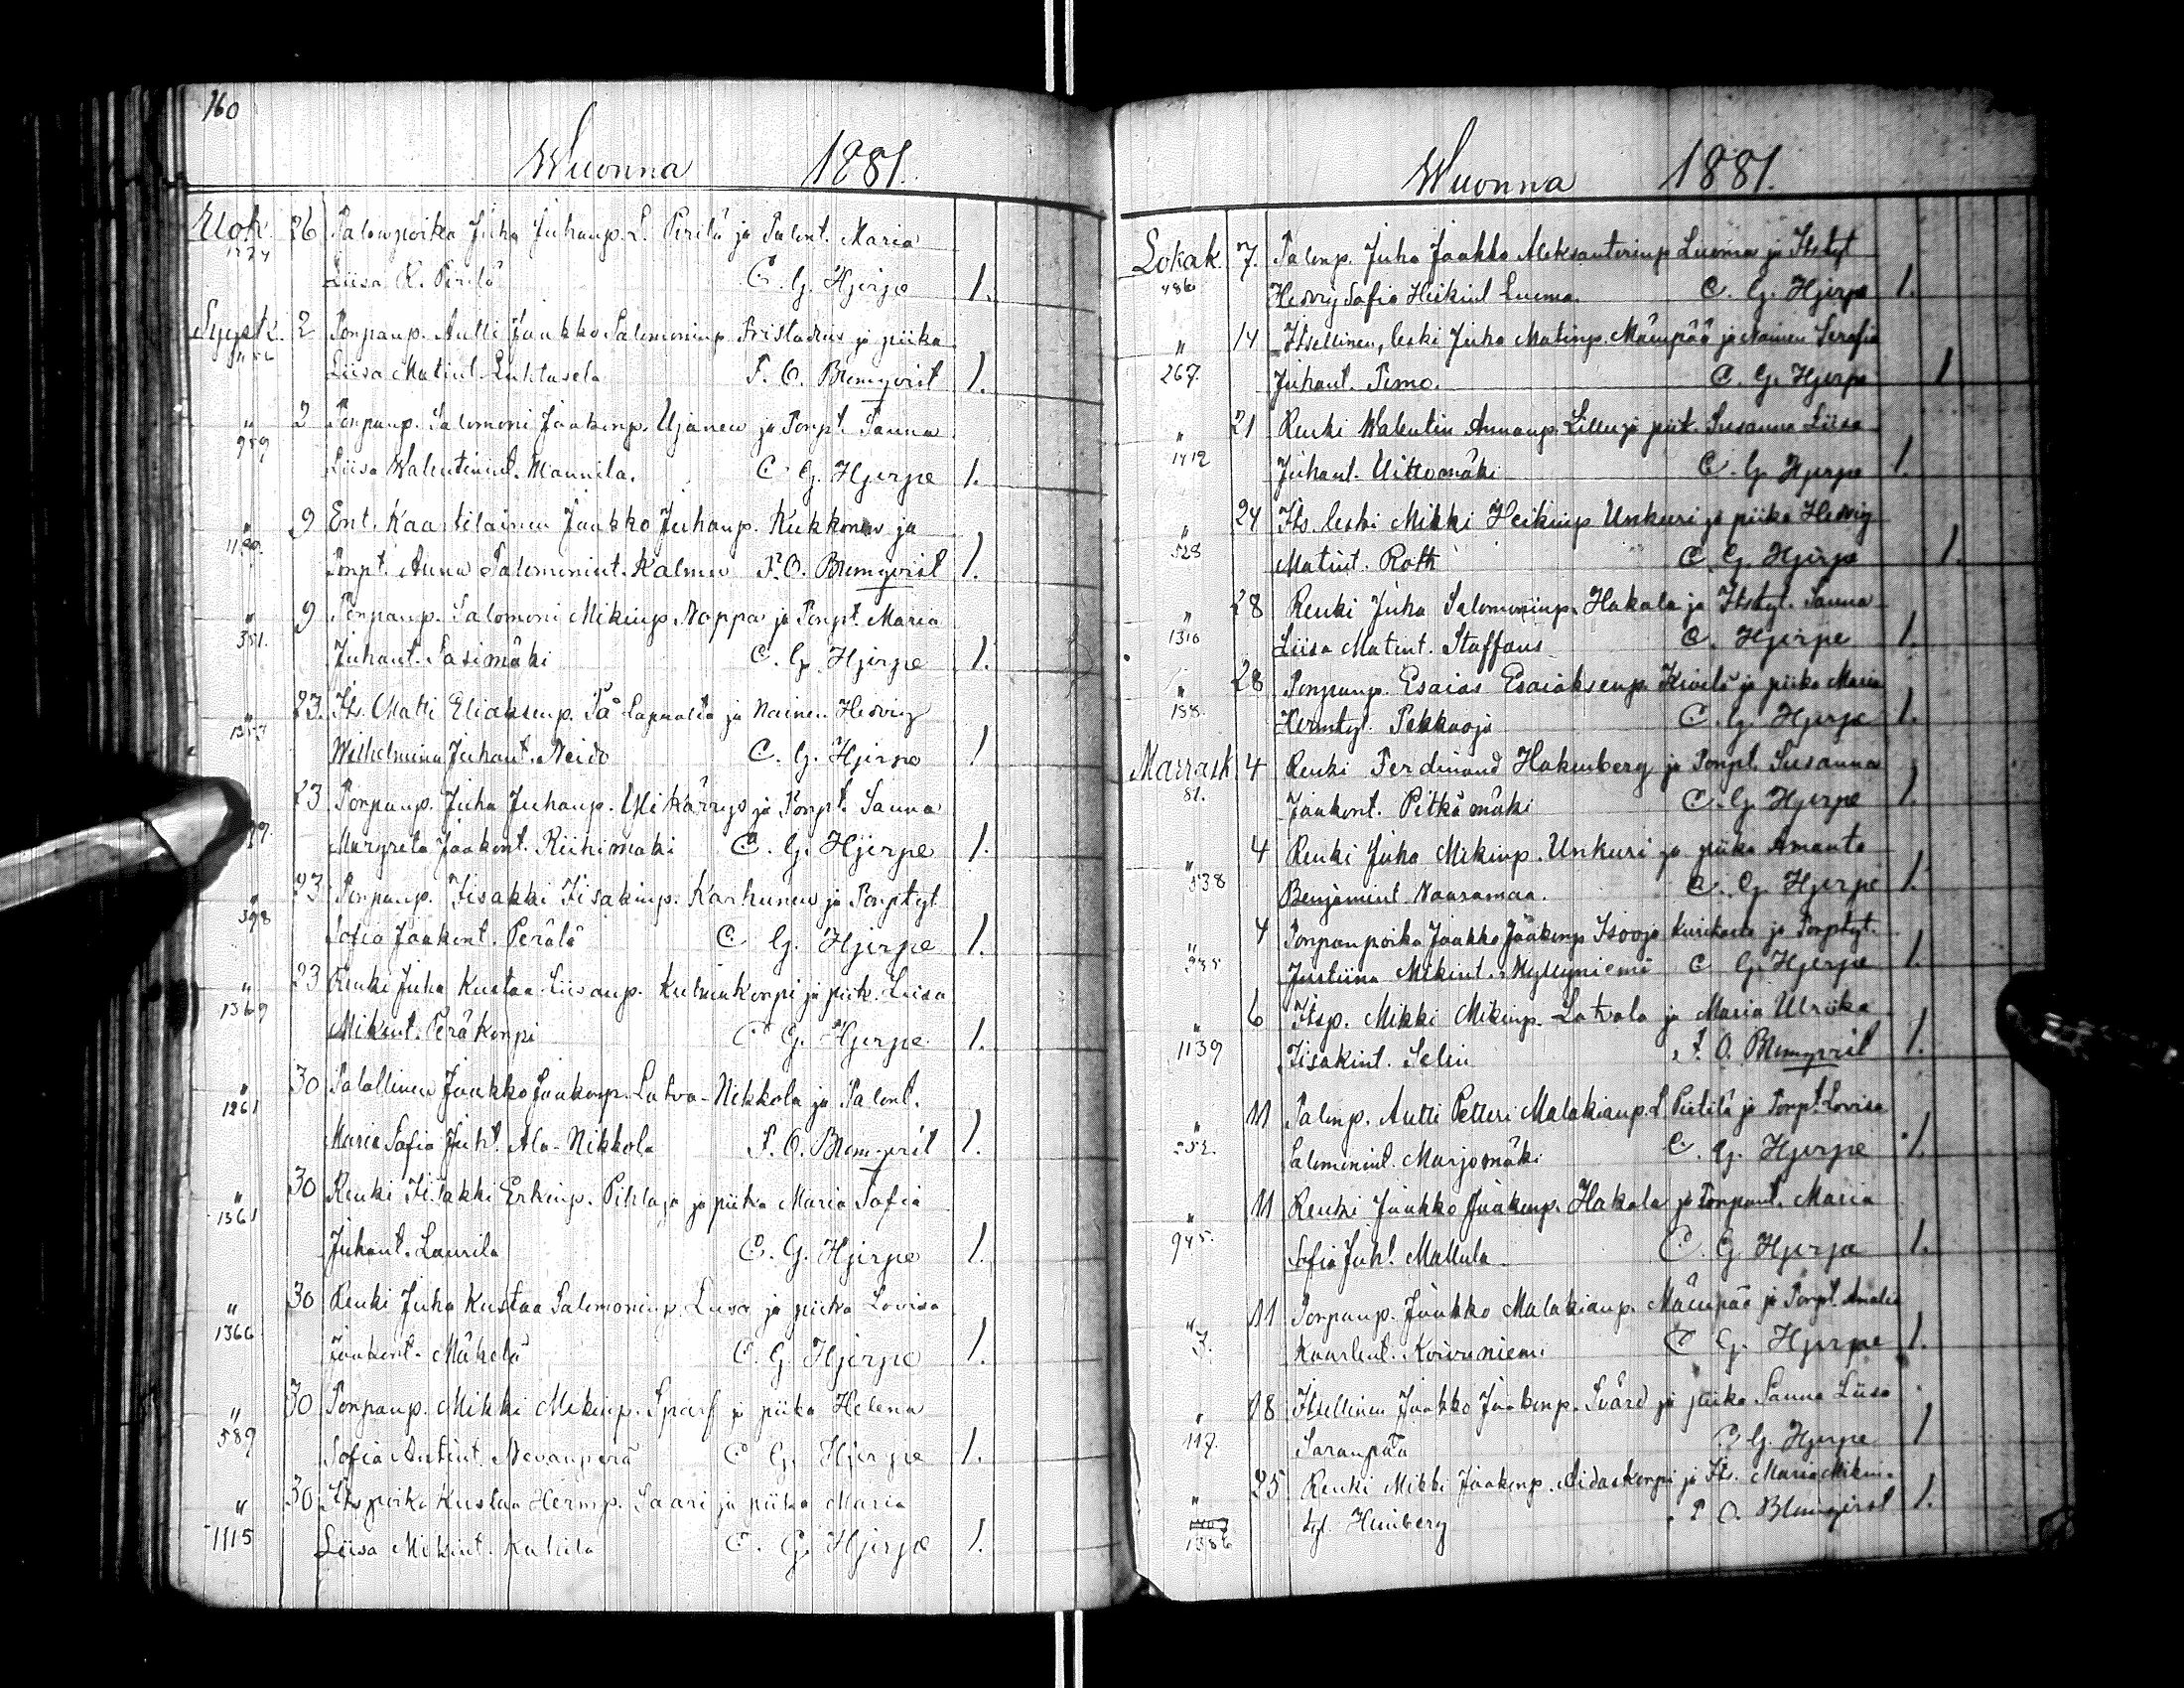 160
Wuonna 1881.
Elok. 26 Talonpoika Juha Juhanp. L. Perilä ja Talont. Maria
1224
Liisa K. Perilä C. G. Hjerpe 1.
Syysk. 2 Torpanp. Antti Jaakko Salomoninp. Fristadius ja piika
Liisa Matint. Luhtasela F. O. Blomqvist 1.
" 2 Torpanp. Salomoni Jaakonp. Ujanen ja Torpt. Sanna
959
Liisa Walentinint. Mannila. C. G. Hjerpe 1.
" 9 Ent. Kaartilainen Jaakko Juhanp. Kukkonen ja
1190.
Torpt. Anna Salomonint. Kalmew F. O. Blomqvist 1.
" 9 Torpanp. Salomoni Mikinp. Noppa ja Torpt. Maria
351.
Juhant. Sasimäki C. G. Hjerpe 1.
" 23. Its. Matti Eliaksenp. Lapualta ja Nainen Hedvig
1353
Wilhelmina Juhant. Neido C. G. Hjerpe 1
23 Torpanp. Juha Juhanp. Ylikärrys ja Torpt. Sanna
Margreta Jaakont. Riihimäki C. G. Hjerpe 1.
" 23 Torpanp. Iisakki Iisakinp. Karhunen ja Torptyt.
398
Sofia Jaakont. Perälä C. G. Hjerpe 1.
" 23 Renki Juha Kustaa Liisanp. Kuhnakorpi ja piik. Liisa
1369
Mikint. Peräkorpi C. G. Hjerpe 1.
" 30 Talollinen Jaakko Jaakonp. Latva-Nikkola ja Talont.
1261
Maria Sofia Juht. Ala-Nikkola F. O. Blomqvist 1.
" 30 Renki Iisakki Erkinp. Pihlaja ja piika Maria Sofia
1361
Juhant. Laurila C. G. Hjerpe 1.
" 30 Renki Juha Kustaa Salomoninp. Luoa ja piika Lovisa
1366
Jaakont. Mäkelä C. G. Hjerpe 1.
" 30 Torpanp. Mikki Mikinp. Sparf ja piika Helena
589
Sofia Antint. Nevanperä C. G. Hjerpe 1.
" 30 Its poika Kustaa Hermp. Saari ja piika Maria
1115
Liisa Mikint. Kuhila C. G. Hjerpe 1.
Wuonna 1881.
Lokak. 7. Talonp. Juha Jaakko Aleksanterinp Luoma ja Itstyt
486
Hedvig Sofia Heikint Luoma. C. G. Hjerpe 1.
" 14 Itsellinen, leski Juha Matinp. Mäenpää ja Nainen Serafia
267.
Juhant. Timo. C. G. Hjerpe 1
" 21 Renki Walentin Annanp. Lillu ja piik. Susanna Liisa
1412
Juhant. Uittomäki C. G. Hjerpe 1.
" 24 Its. leski Mikki Heikinp Unkuri ja piika Hedvig
528
Matint. Roth C. G. Hjerpe 1.
" 28 Renki Juha Salomoninp. Hakala ja Itstyt. Sanna
1310
Liisa Matint. Staffans C. Hjerpe 1.
" 28 Torpanp. Esaias Esaiaksenp. Kivelä ja piika Maria
158.
Hermtyt. Pekkaoja C. G. Hjerpe 1.
Marrask 4 Renki Ferdinand Hakenberg ja Torpt. Susanna
81.
Jaakont. Pitkämäki C. G. Hjerpe 1.
" 4 Renki Juha Mikinp. Unkuri ja piika Amanta
538
Benjamint. Naaramaa. C. G. Hjerpe 1.
" 4 Torpanpoika Jaakko Jaakonp Isooja Kurikasta ja Torptyt.
Justiina Mikint. Myllyniemi C G. Hjerpe 1.
" 6 Itsp. Mikki Mikinp. Latvala ja Maria Ulriika
1139
Iisakint. Selin F. O. Blomqvist 1.
" 11 Talonp. Antti Petteri Malakianp. L. Pietilä ja Torpt. Lovisa
252.
Salomonint. Marjomäki C. G. Hjerpe 1.
" 11 Renki Jaakko Jaakonp. Hakala ja Torpant. Maria
945.
Sofia Juht. Mallula C. G. Hjerpe 1.
" 11 Torpanp. Jaakko Malakianp. Mäenpää ja Torpt. Amalia
3.
Kaarlent. Koivuniemi C G. Hjerpe 1.
" 18 Itsellinen Jaakko Jaakonp. Svärd ja piika Sanna Liisa
117.
Saranpää C G. Hjerpe 1
" 25 Renki Mikki Jaakonp. Aidaskorpi ja Its. Maria Mikin-
1386
tyt. Heinberg F O. Blomqvist 1.